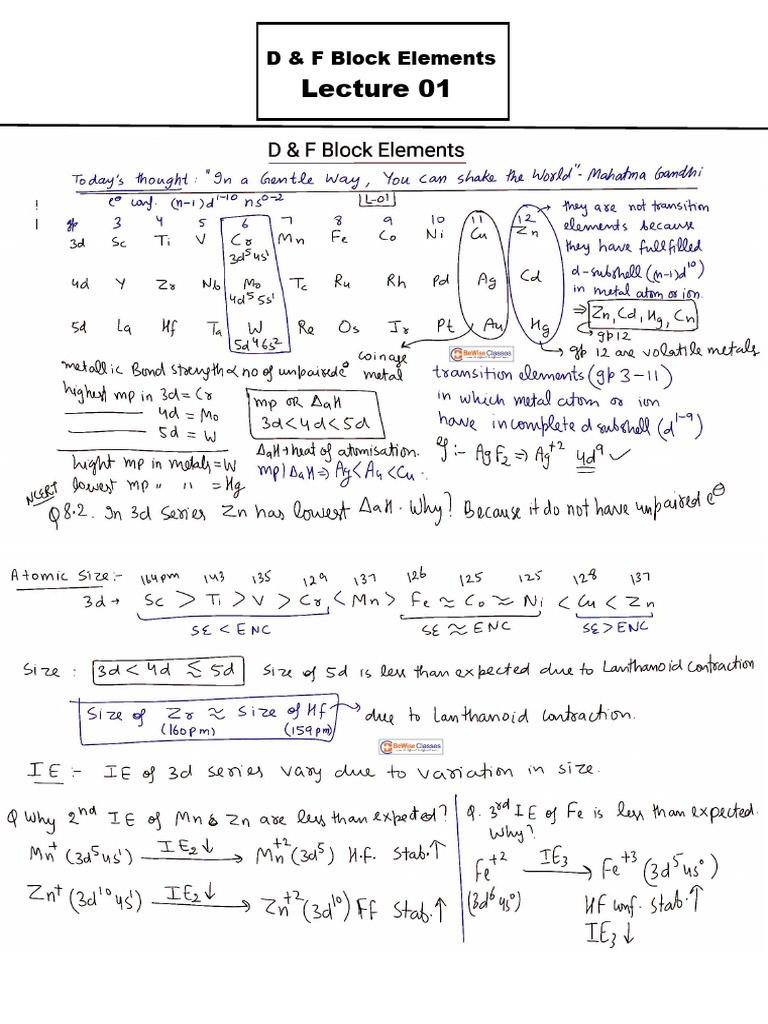 D & F Block Elements
Lecture 01
D & F Block Elements
Today's thought: "In a Gentle Way, You can shake the World" - Mahatma Gandhi
e⊖ conf. (n-1)d¹⁻¹⁰ ns⁰⁻² L-01
gp 3 4 5 6 7 8 9 10 11 12
3d Sc Ti V Cr Mn Fe Co Ni Cu Zn
3d⁵4s¹
4d Y Zr Nb Mo Tc Ru Rh Pd Ag Cd
4d⁵5s¹
5d La Hf Ta W Re Os Ir Pt Au Hg
5d⁴6s²
they are not transition
elements because
they have fullfilled
d-subshell (n-1)d¹⁰)
in metal atom or ion.
⇒ Zn, Cd, Hg, Cn
gp12
BeWise Classes
→ gp 12 are volatile metals
coinage
metal
metallic Bond strength ∝ no of unpaired e⊖
highest mp in 3d = Cr
4d = Mo
5d = W
hight mp in metals = W
lowest mp " " = Hg
mp OR ΔaH
3d < 4d < 5d
ΔaH → heat of atomisation.
mp | ΔaH ⇒ Ag < Au < Cu.
transition elements (gp 3-11)
in which metal atom or ion
have incomplete d subshell (d¹⁻⁹)
eg :- AgF₂ ⇒ Ag⁺² 4d⁹ ✓
NCERT
Q8.2. In 3d series Zn has lowest ΔaH. Why? Because it do not have unpaired e⊖
Atomic Size:- 164pm 143 135 129 137 126 125 125 128 137
3d → Sc > Ti > V > Cr < Mn > Fe ≈ Co ≈ Ni < Cu < Zn
SE < ENC SE ≈ ENC SE > ENC
Size : 3d < 4d ≲ 5d Size of 5d is less than expected due to Lanthanoid contraction
Size of Zr ≈ Size of Hf → due to Lanthanoid contraction.
(160pm) (159pm)
BeWise Classes
IE :- IE of 3d series vary due to variation in size.
Q Why 2nd IE of Mn & Zn are less than expected?
Mn⁺ (3d⁵4s¹) IE₂↓ → Mn⁺² (3d⁵) H.f. Stab.↑
Zn⁺ (3d¹⁰4s¹) IE₂↓ → Zn⁺² (3d¹⁰) Ff Stab.↑
Q. 3rd IE of Fe is less than expected.
Why?
Fe⁺² IE₃ → Fe⁺³ (3d⁵4s⁰)
(3d⁶4s⁰) HF conf. Stab.↑
IE₃↓